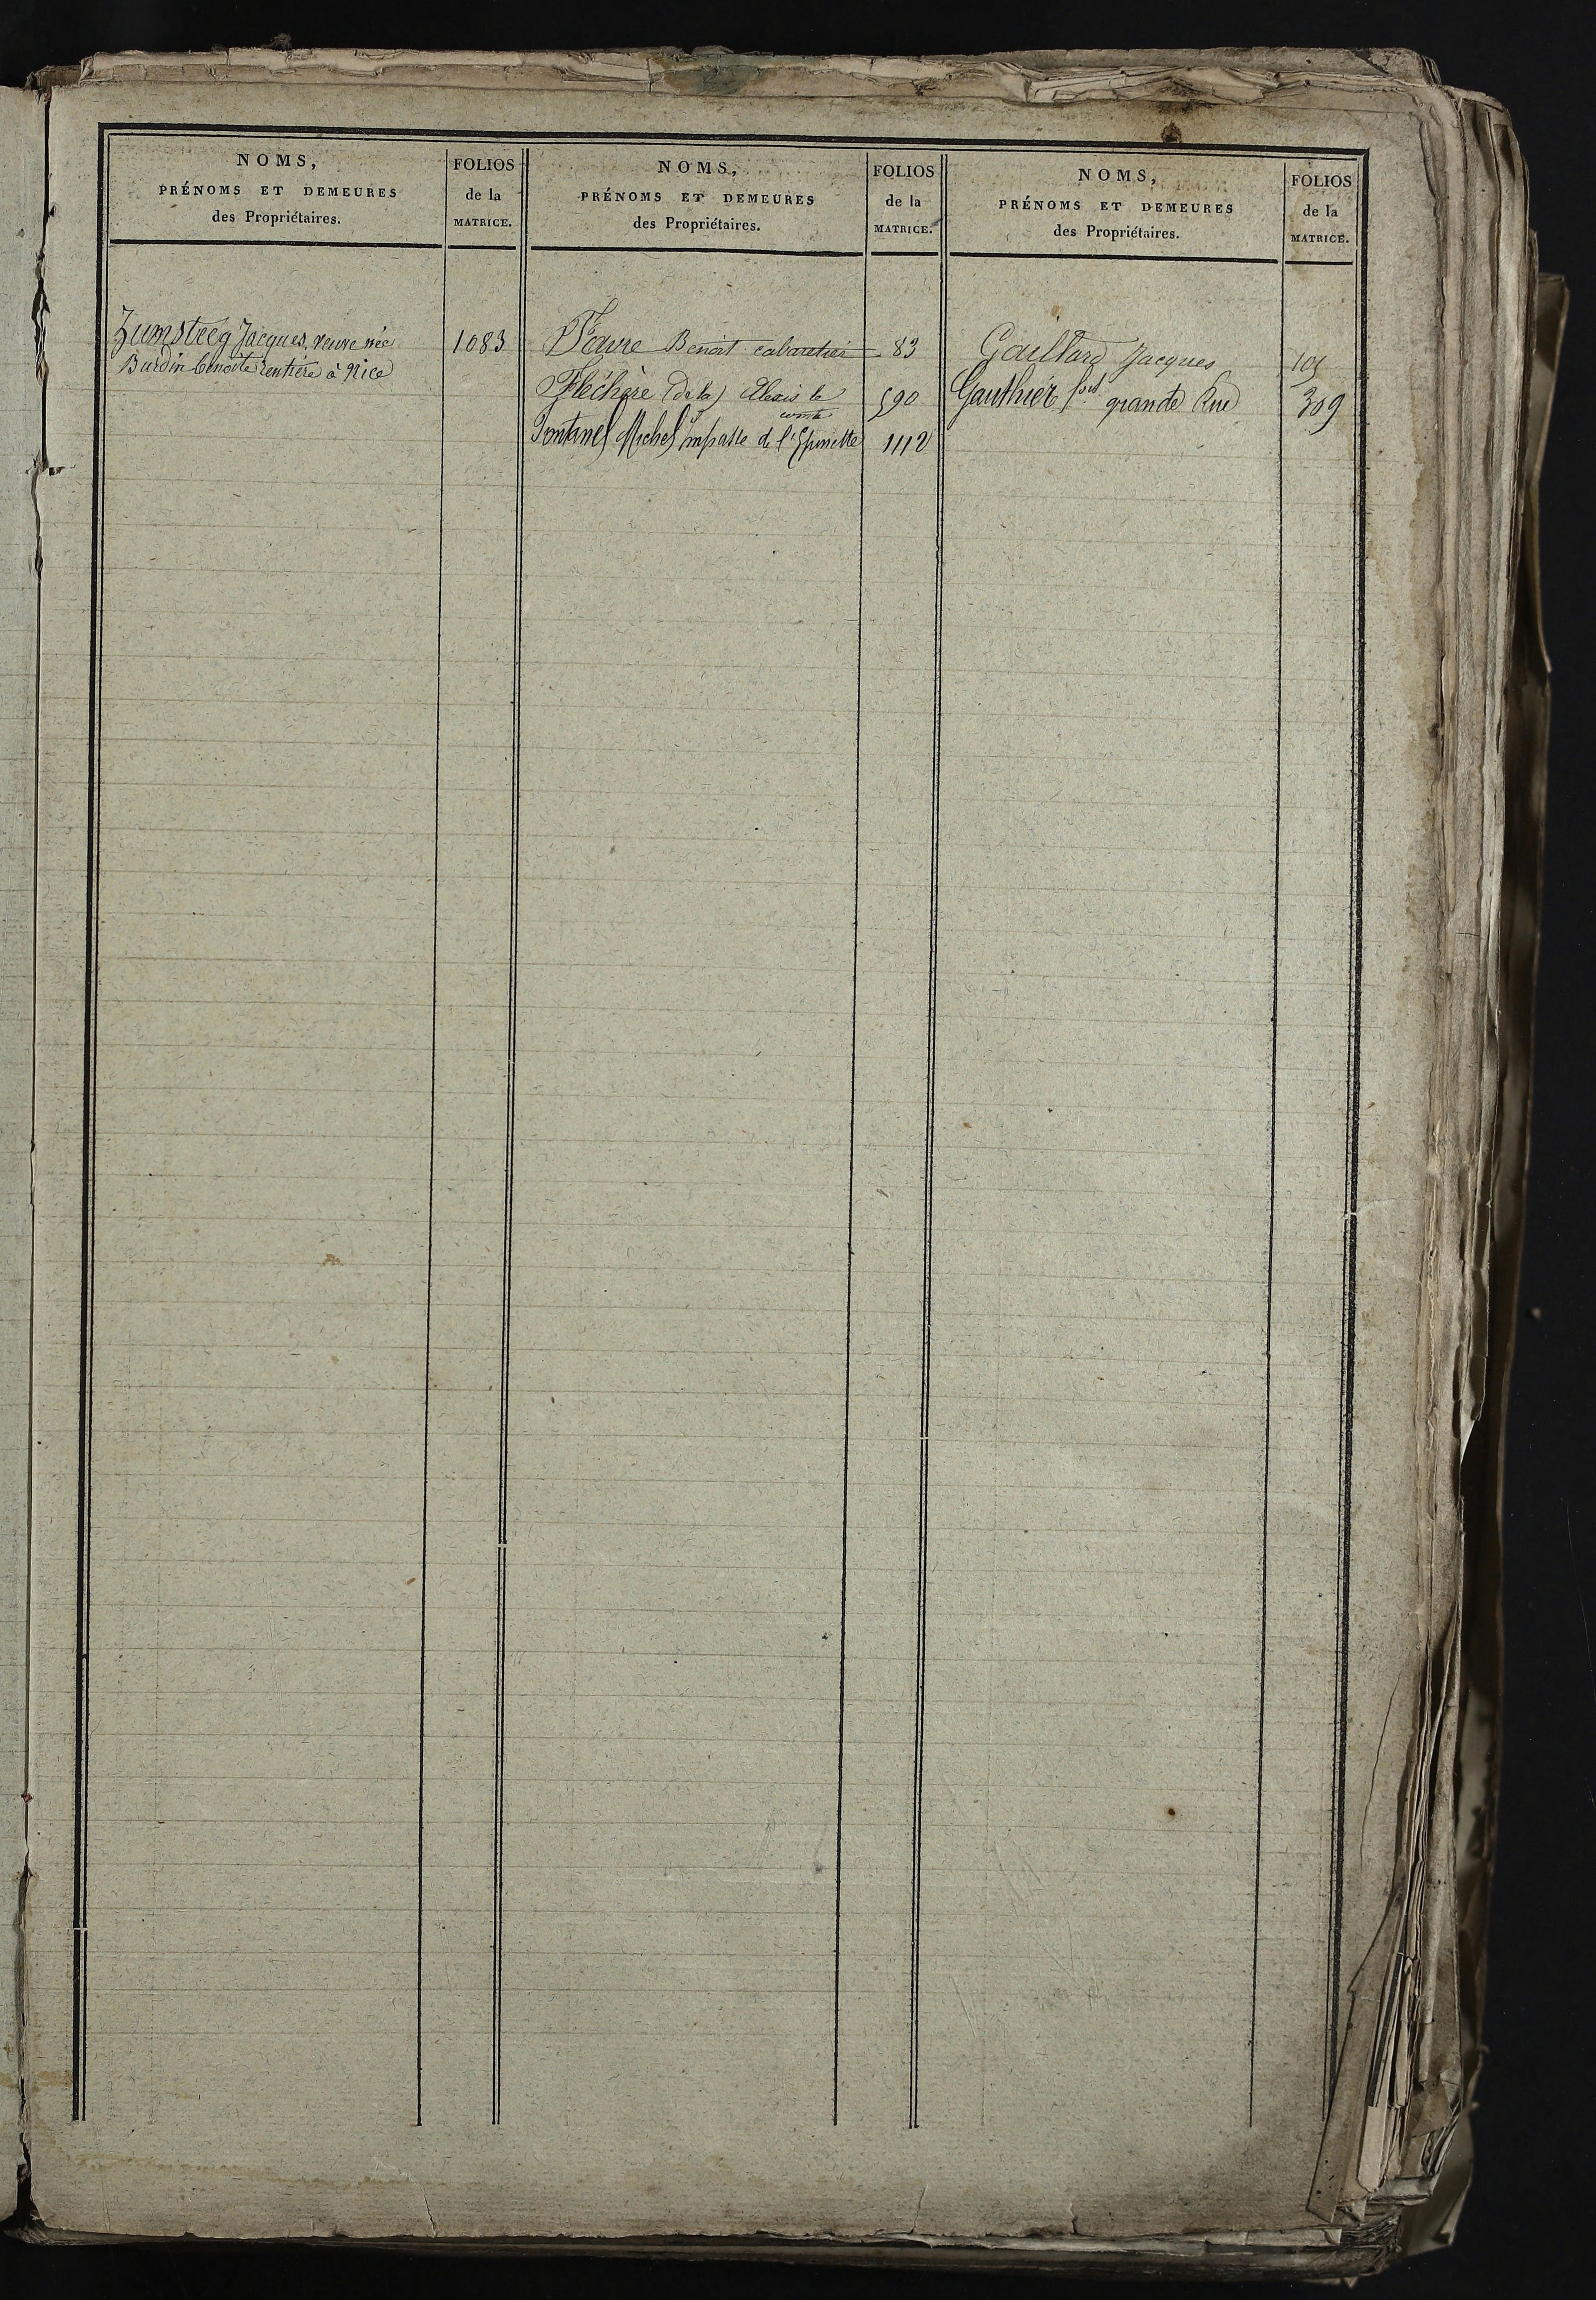 NOMS,
PRÉNOMS ET DEMEURES
des Propriétaires.
FOLIOS
de la
MATRICE.
Zumsteeg Jacques, veuve née
Burdin benoite rentière à Nice
1083
NOMS,
PRÉNOMS ET DEMEURES
des Propriétaires.
FOLIOS
de la
MATRICE.
Favre Benoit cabaretier 83
Fléchère (de la) Alexis le
comte
590
Fontanel Michel impasse de l'Epinette 1112
NOMS,
PRÉNOMS ET DEMEURES
des Propriétaires.
FOLIOS
de la
MATRICE.
Gaillard Jacques
Gauthier grande Rue 309